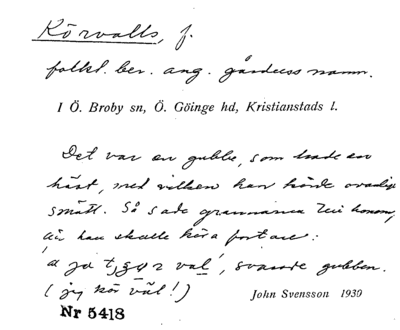 Körvalls, f.
folkl. ber. ang. gårdens namn.
I Ö. Broby sn, Ö. Göinge hd, Kristianstads l.
Det var en gubbe, som hade en
häst, med vilken han körde ovanligt
smått. Så sade grannarna till honom,
att han skulle köra fortare:
val', svarade gubben.
(jag kör väl!)
John Svensson 1930
Nr 5418